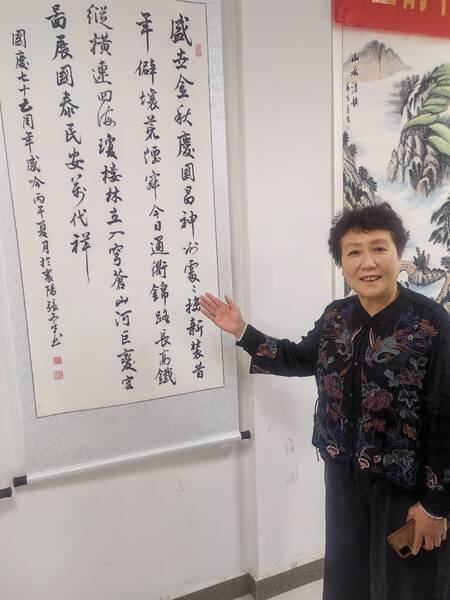 盛世金秋慶國昌神州處々換新裝昔
年僻壤荒陲窄今日通衢錦路長高鐵
縱橫連四海瓊樓林立入穹蒼山河巨變宏
圖展國泰民安萬代祥
國慶七十五周年感吟丙午夏月於襄陽張书
山水清